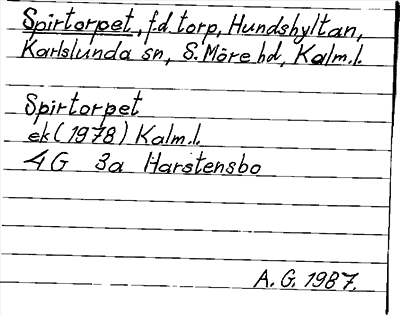 Spirtorpet, f.d. torp, Hundshyltan,
Karlslunda sn, S. Möre hd, Kalm.l.
Spirtorpet
ek (1978) Kalm.l.
4 G 3a Harstensbo
A. G. 1987.